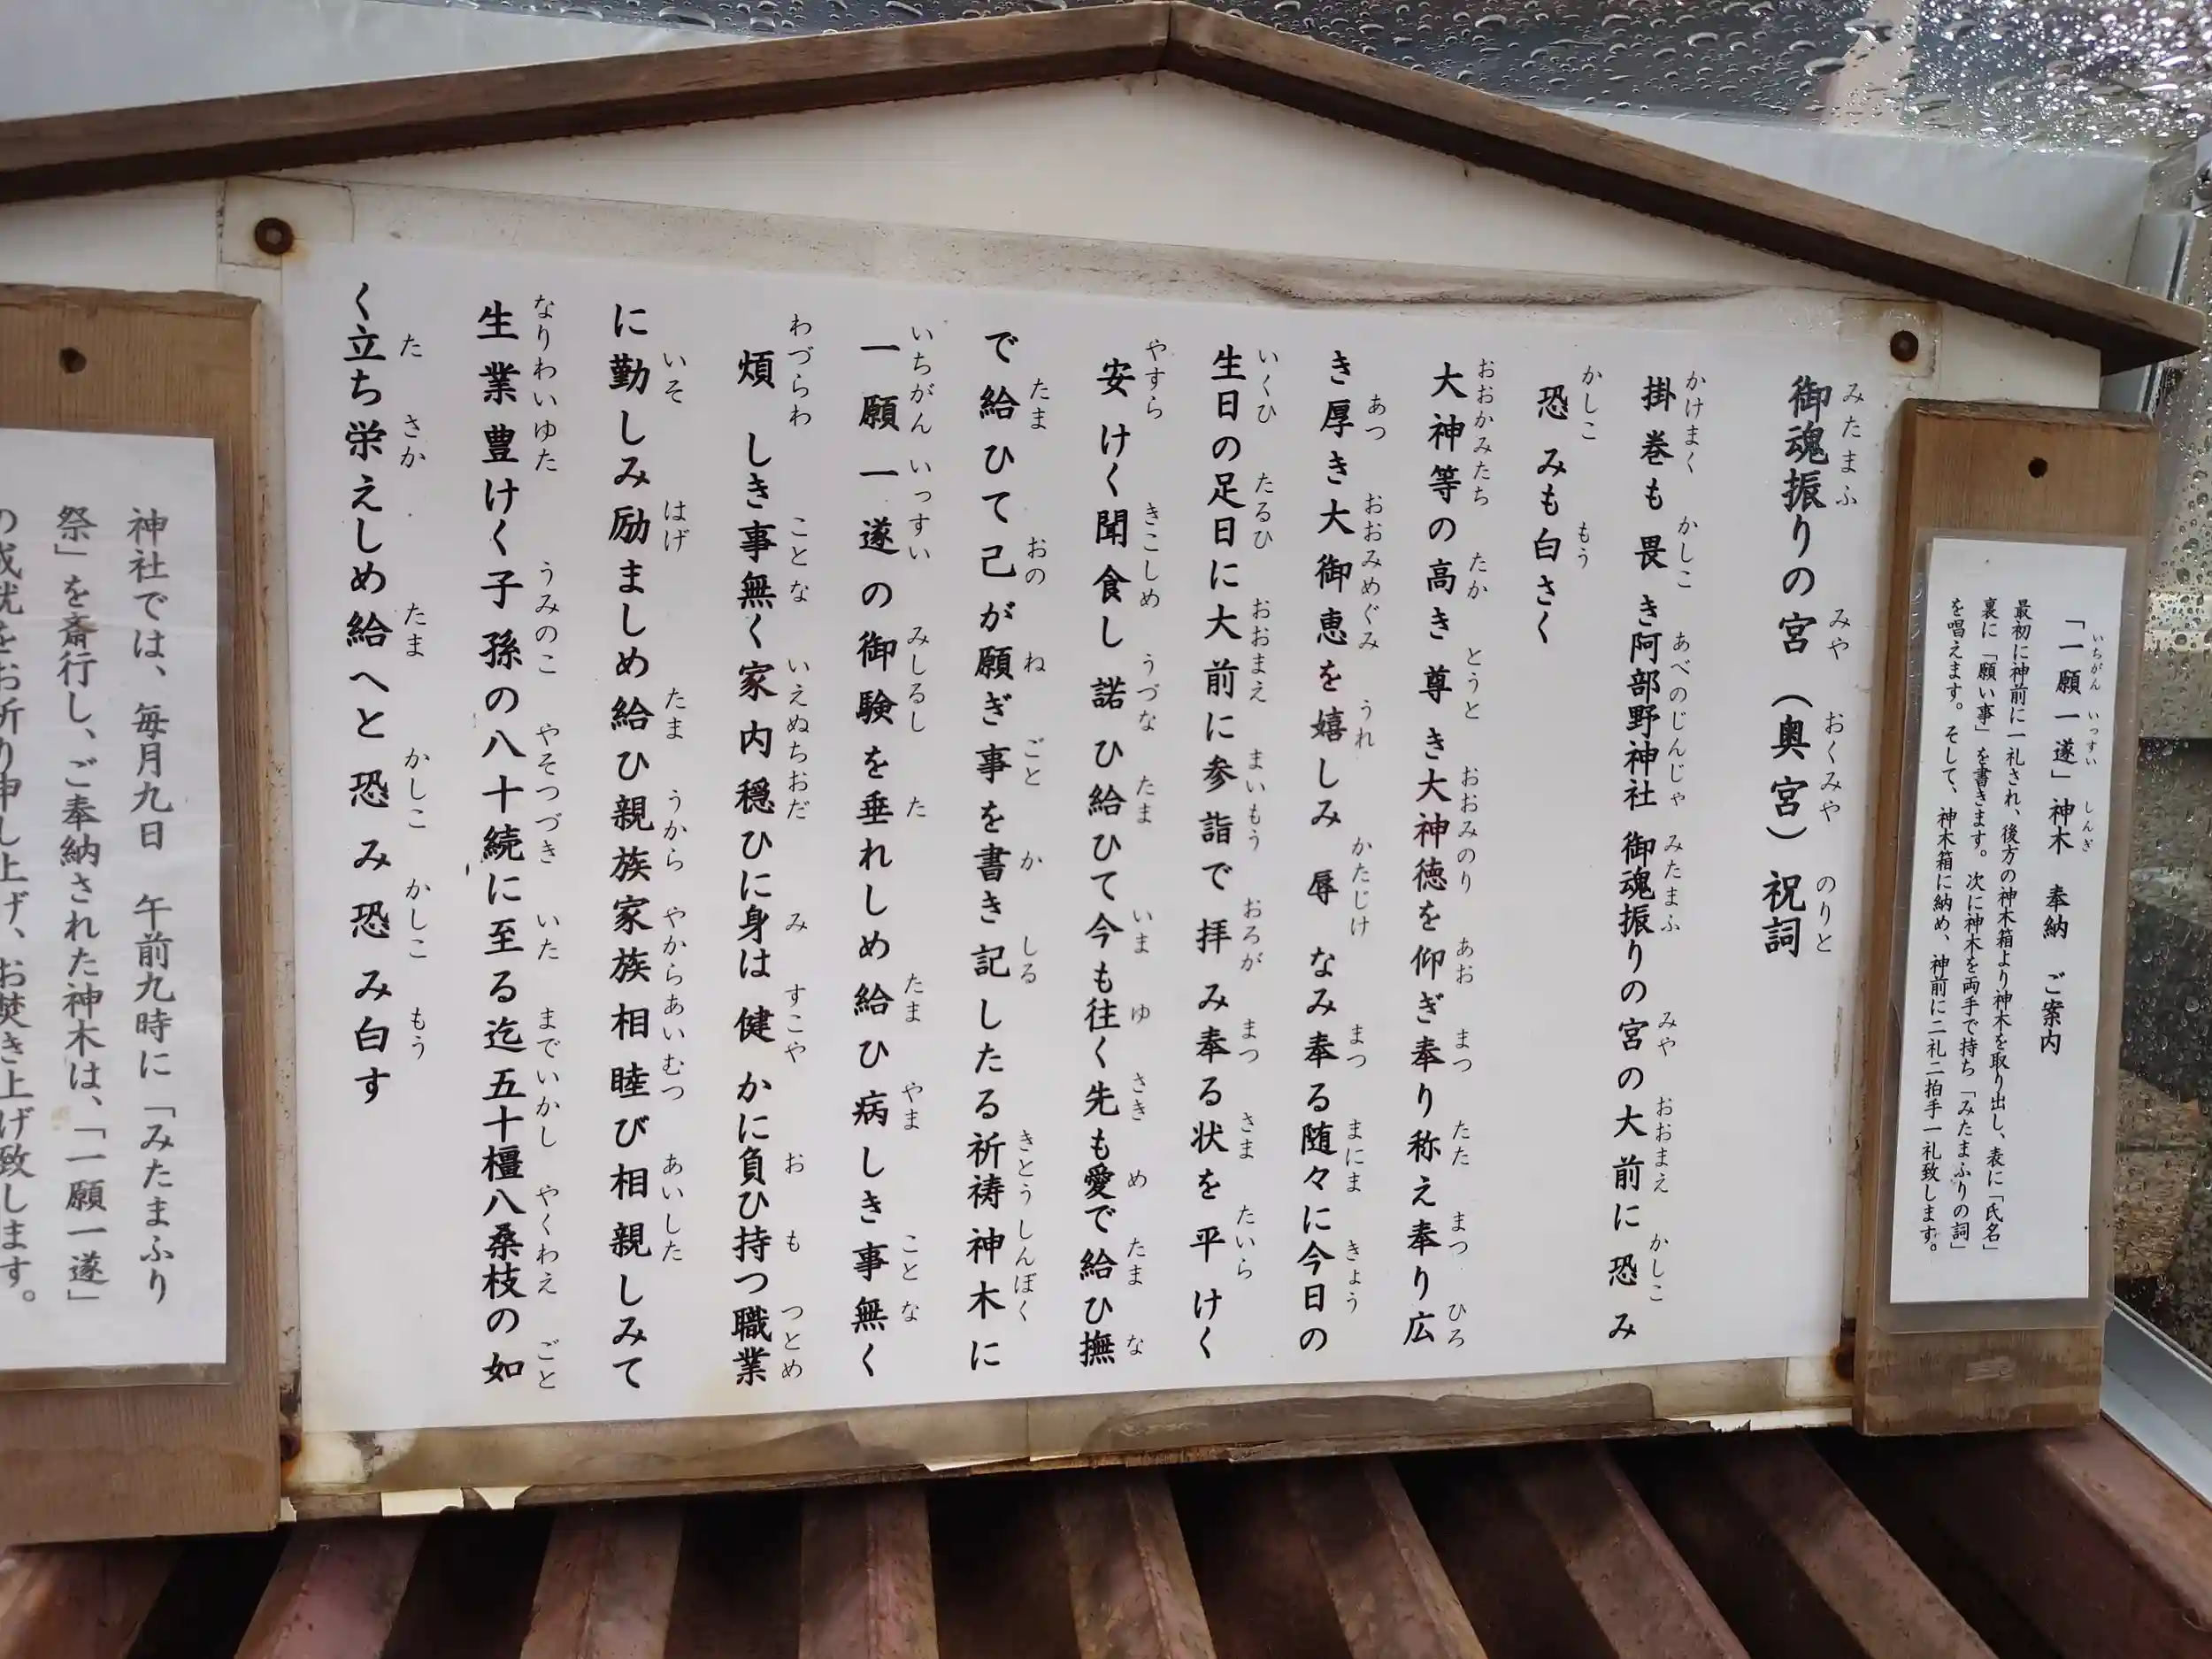 「一願一遂」神木　奉納　ご案内
最初に神前に一礼され、後方の神木箱より神木を取り出し、表に「氏名」
裏に「願い事」を書きます。次に神木を両手で持ち「みたまふりの詞」
を唱えます。そして、神木箱に納め、神前に二礼二拍手一礼致します。
御魂振りの宮（奥宮）祝詞
掛巻も畏き阿部野神社御魂振りの宮の大前に恐み
恐みも白さく
大神等の高き尊き大神徳を仰ぎ奉り称え奉り広
き厚き大御恵を嬉しみ辱なみ奉る随々に今日の
生日の足日に大前に参詣で拝み奉る状を平けく
安けく聞食し諾ひ給ひて今も往く先も愛で給ひ撫
で給ひて己が願ぎ事を書き記したる祈祷神木に
一願一遂の御験を垂れしめ給ひ病しき事無く
煩しき事無く家内穏ひに身は健かに負ひ持つ職業
に勤しみ励ましめ給ひ親族家族相睦び相親しみて
生業豊けく子孫の八十続に至る迄五十橿八桑枝の如
く立ち栄えしめ給へと恐み恐み白す
神社では、毎月九日　午前九時に「みたまふり
祭」を斎行し、ご奉納された神木は、「一願一遂」
の成就をお祈り申し上げ、お焚き上げ致します。